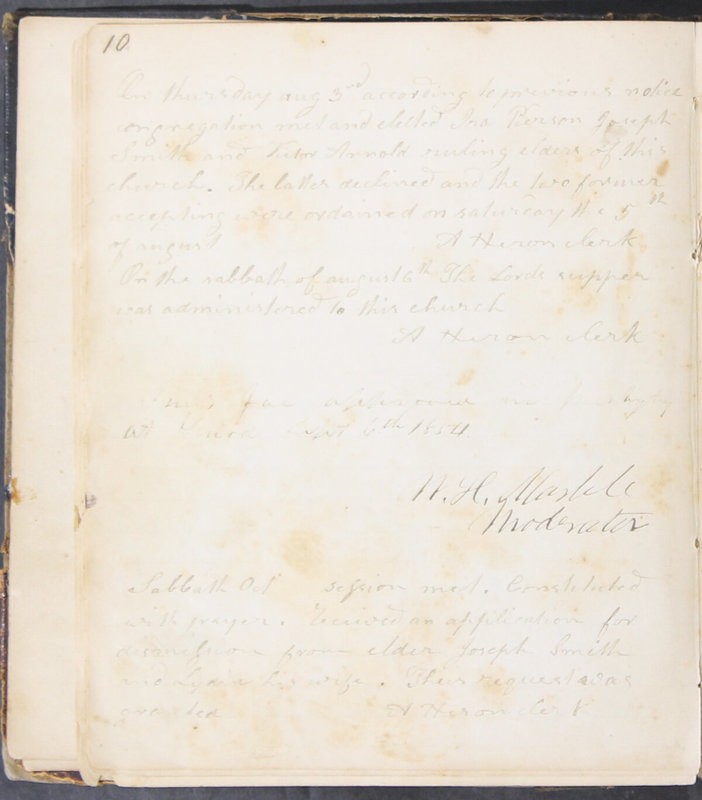 10
On thursday aug 3rd according to previous notice
congregation met and elected Ira Pierson Joseph
Smith and Arnold ruling elders of this
church. The latter declined and the two former
accepting were ordained on saturday the 5th
of august A Heron clerk
On the sabbath of august 6th The Lords supper
was administered to this church
A Heron clerk
thus far approved in
at Sept 6th 1854
W. H.
Moderator
Sabbath Oct session met. Constituted
with prayer. Received an application for
dismission from elder Joseph Smith
and Lydia his wife. Their request was
granted A Heron clerk